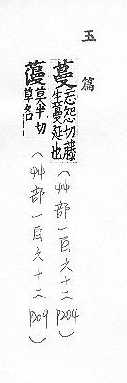 玉篇
蔓亡怨切藤生蔓延也（艸部一百六十二 P204）
薓莫半切草名（艸部一百六十二 P204）